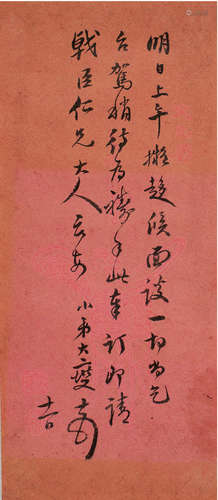 明日上午擬趨候面談一切尚乞
台駕稍待為禱手此奉訂即請
戟臣仁兄大人台安 小弟大燮
十一日